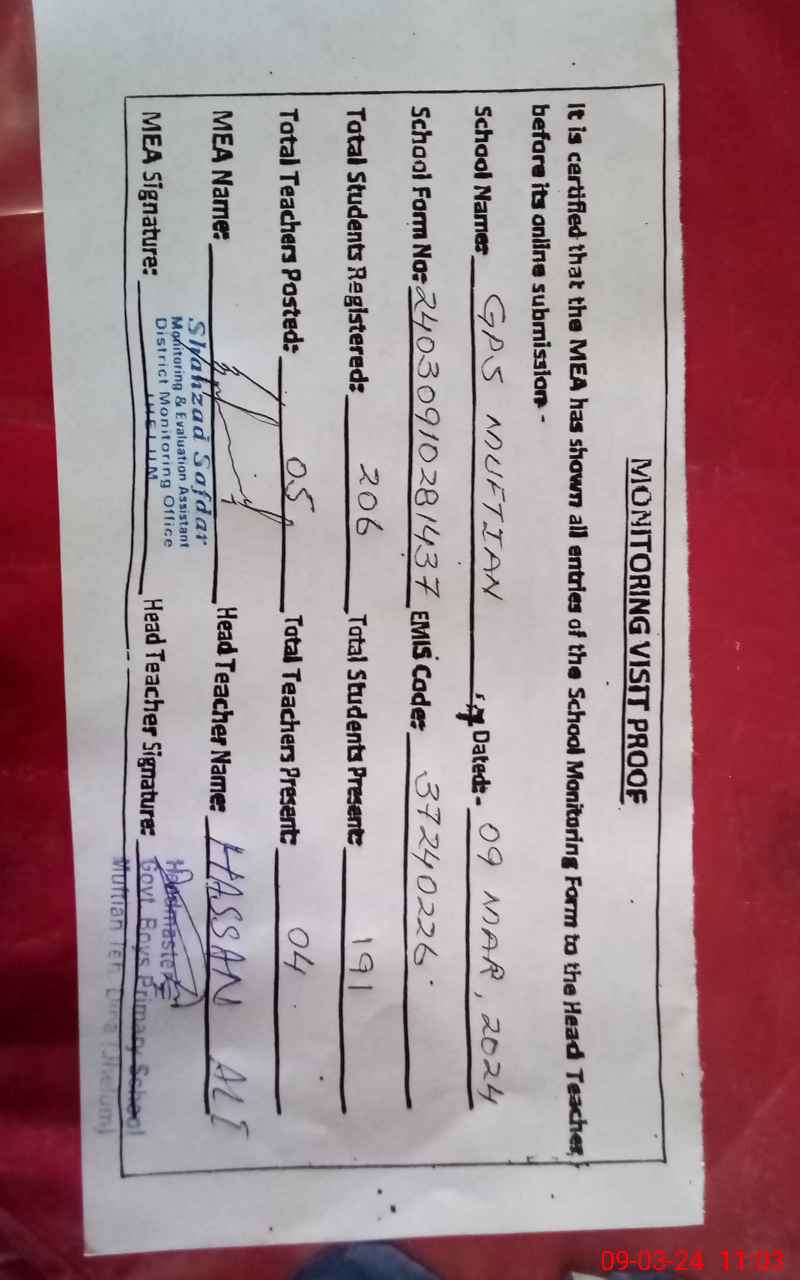 MONITORING VISIT PROOF
It is certified that the MEA has shown all entries of the School Monitoring Form to the Head Teacher,
before its online submission-
School Name: GPS MUFTIAN Dated:- 09 MAR, 2024
School Form No: 24030910281437 EMIS Code: 37240226
Total Students Registered: 206 Total Students Present: 191
Total Teachers Posted: 05 Total Teachers Present: 04
MEA Name: Head Teacher Name: HASSAN ALI
MEA Signature: Head Teacher Signature:
Shahzad Safdar
Monitoring & Evaluation Assistant
District Monitoring Office
JHELUM
Headmaster
Govt Boys Primary School
Muftian Teh. Dina (Jhelum)
09-03-24 11:03